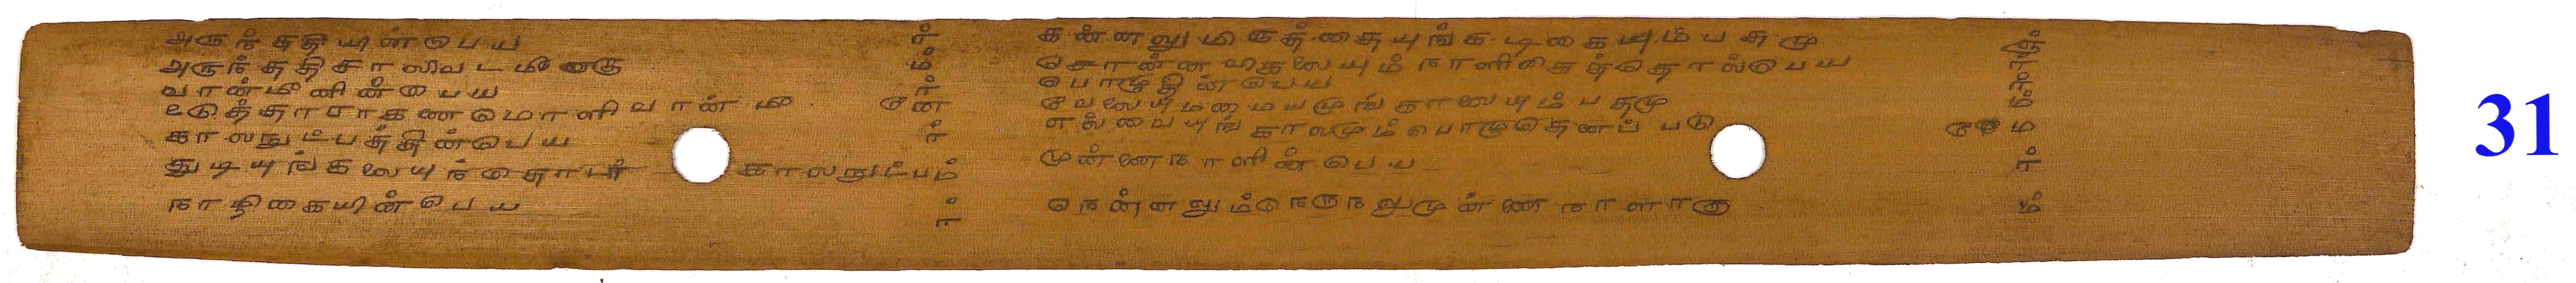 அருந்ததியின்பெயர்
அருந்ததிசாலிவடமீனாகும்
வான்மீனின்பெயர்
உடுத்தாரகணமொளிவான்மீனே
காலநுட்பத்தின்பெயர்
துடியுங்கலையுந் காலநுட்பம்
நாழிகையின்பெயர்
கன்னலு கடிகையும்பதமு
நாளிகைத்தொல்பெய
பொழுதின்பெயர்
வேலையுமமையமுங்காலையும்பதமும்
எல்வையுங்காலமும்பொழுதெனப்படுமே
முன்னைநாளின்பெயர்
நென்னலும்நெருநலுமுன்னைநாளாகும்
31